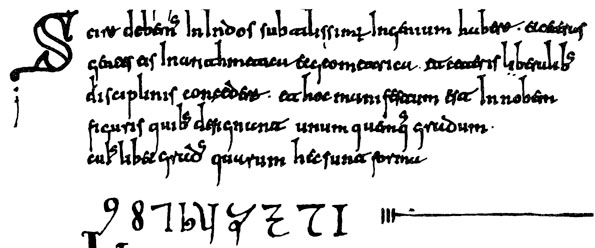 Scire debemˢ In Indos subtilissimū Ingenium habere. et ceteras
gentes eis In arithmetica et geometrica. et ceteris liberalibˢ
disciplinis concedere. et hoc manifestum est In nobem
figuris quibˢ designant unumquemqˢ gradum.
cuiˢlibet gradˢ quarum hec sunt forma
9 8 7 6 5 4 3 2 1